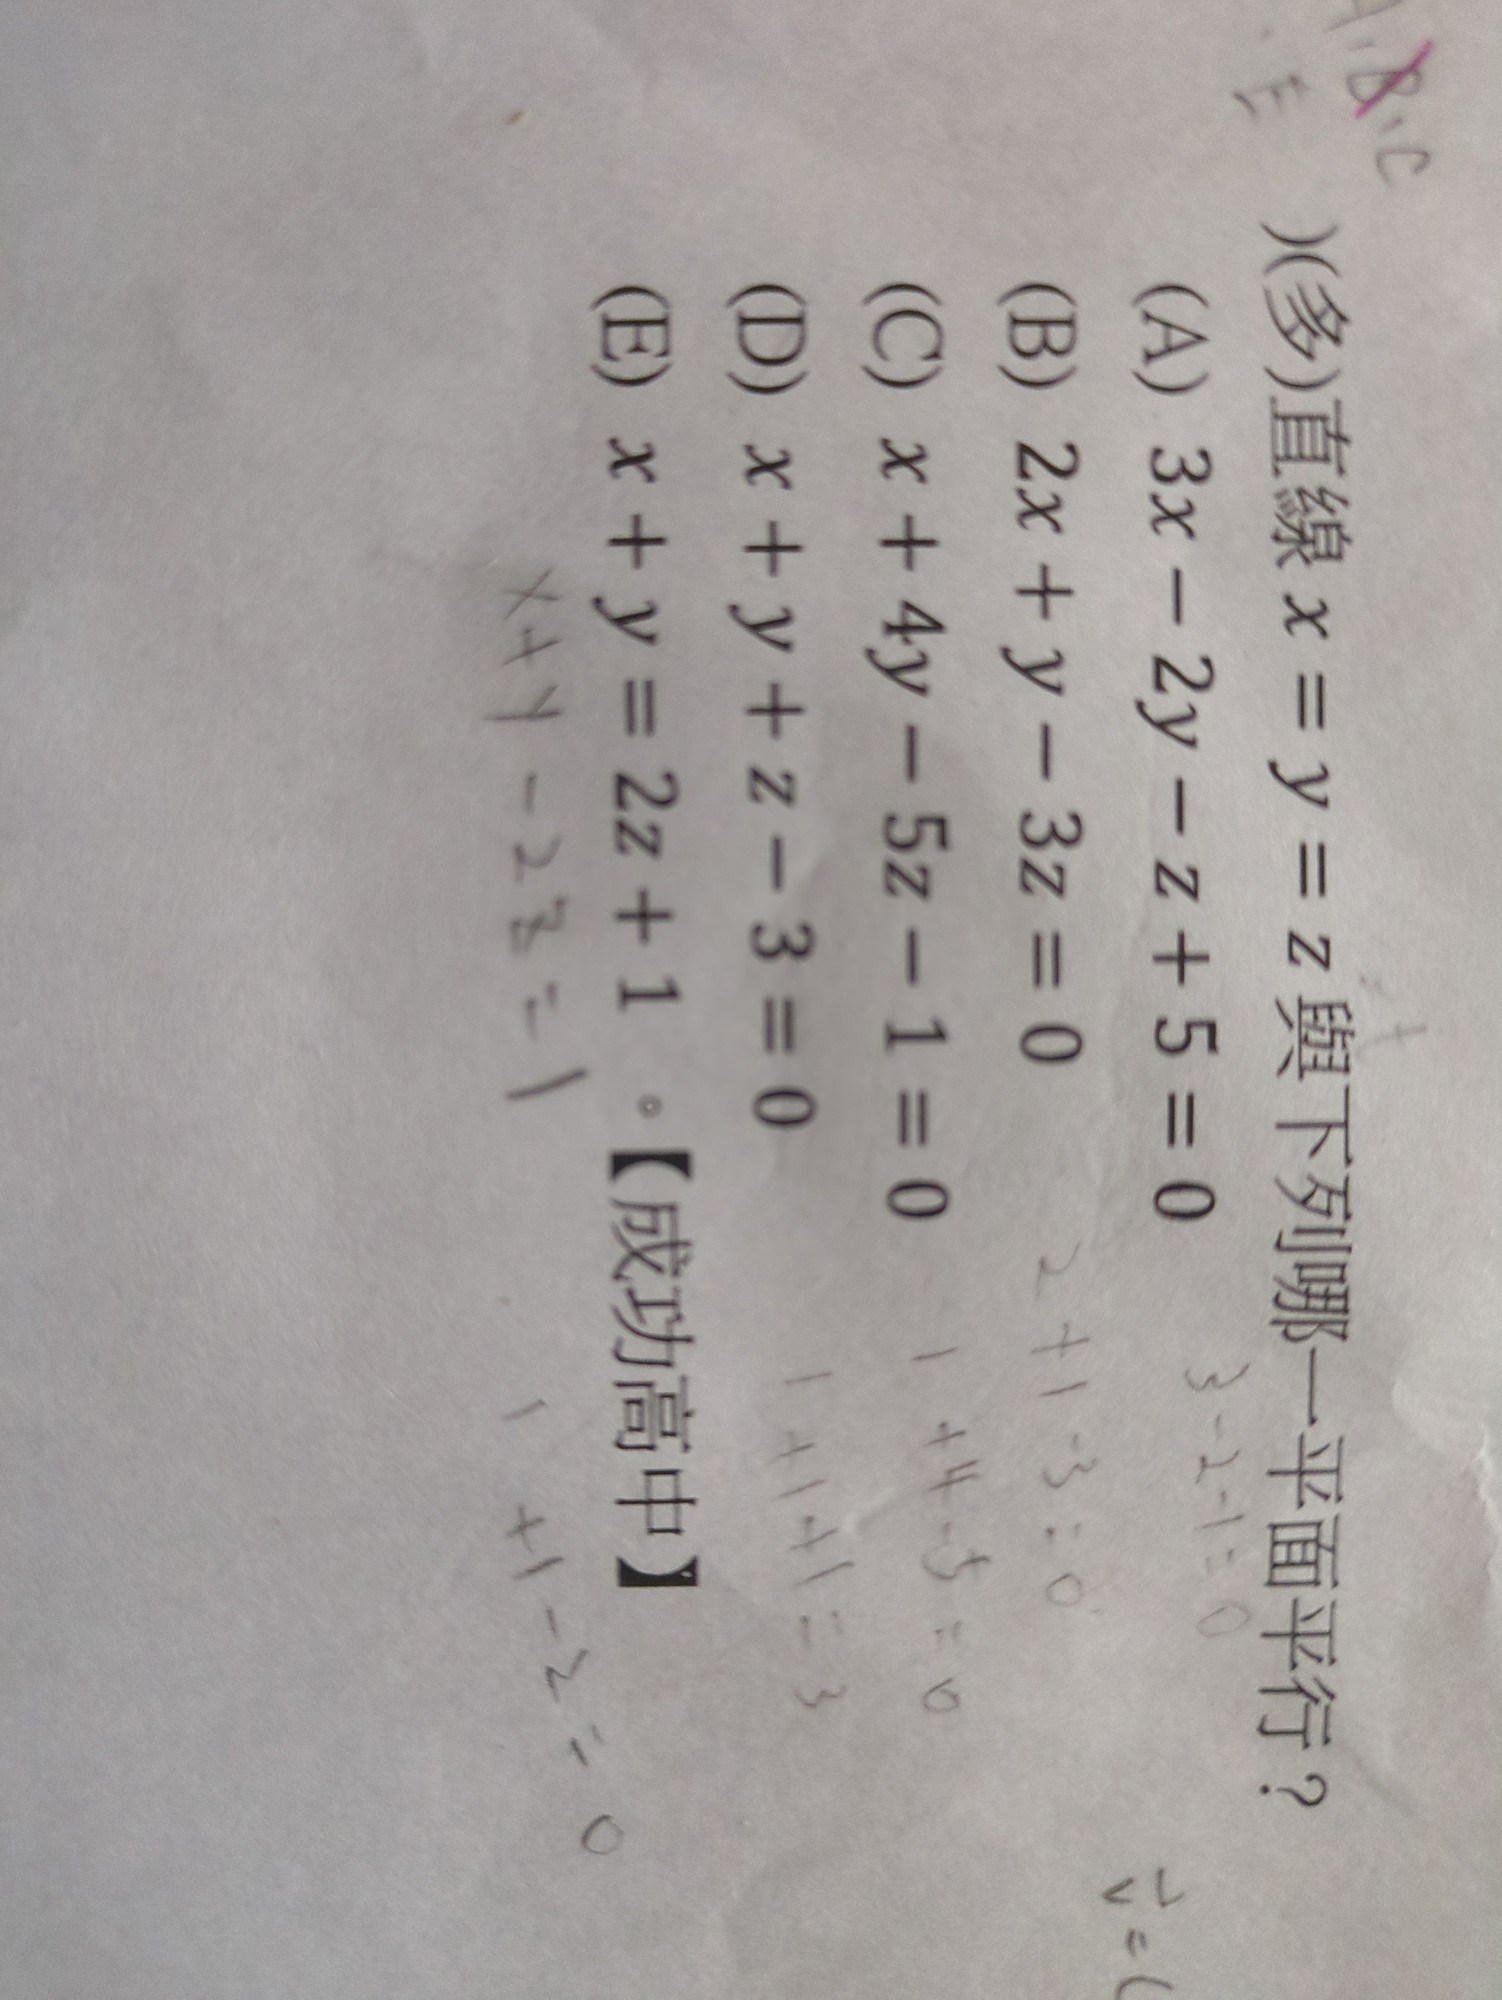 A, B, C
E
)(多)直線 x = y = z 與下列哪一平面平行？
(A) 3x − 2y − z + 5 = 0
3-2-1=0
(B) 2x + y − 3z = 0
2+1-3=0
(C) x + 4y − 5z − 1 = 0
1+4-5=0
(D) x + y + z − 3 = 0
1+1+1=3
(E) x + y = 2z + 1 。【成功高中】
x+y-2z=1
1+1-2=0
v=(